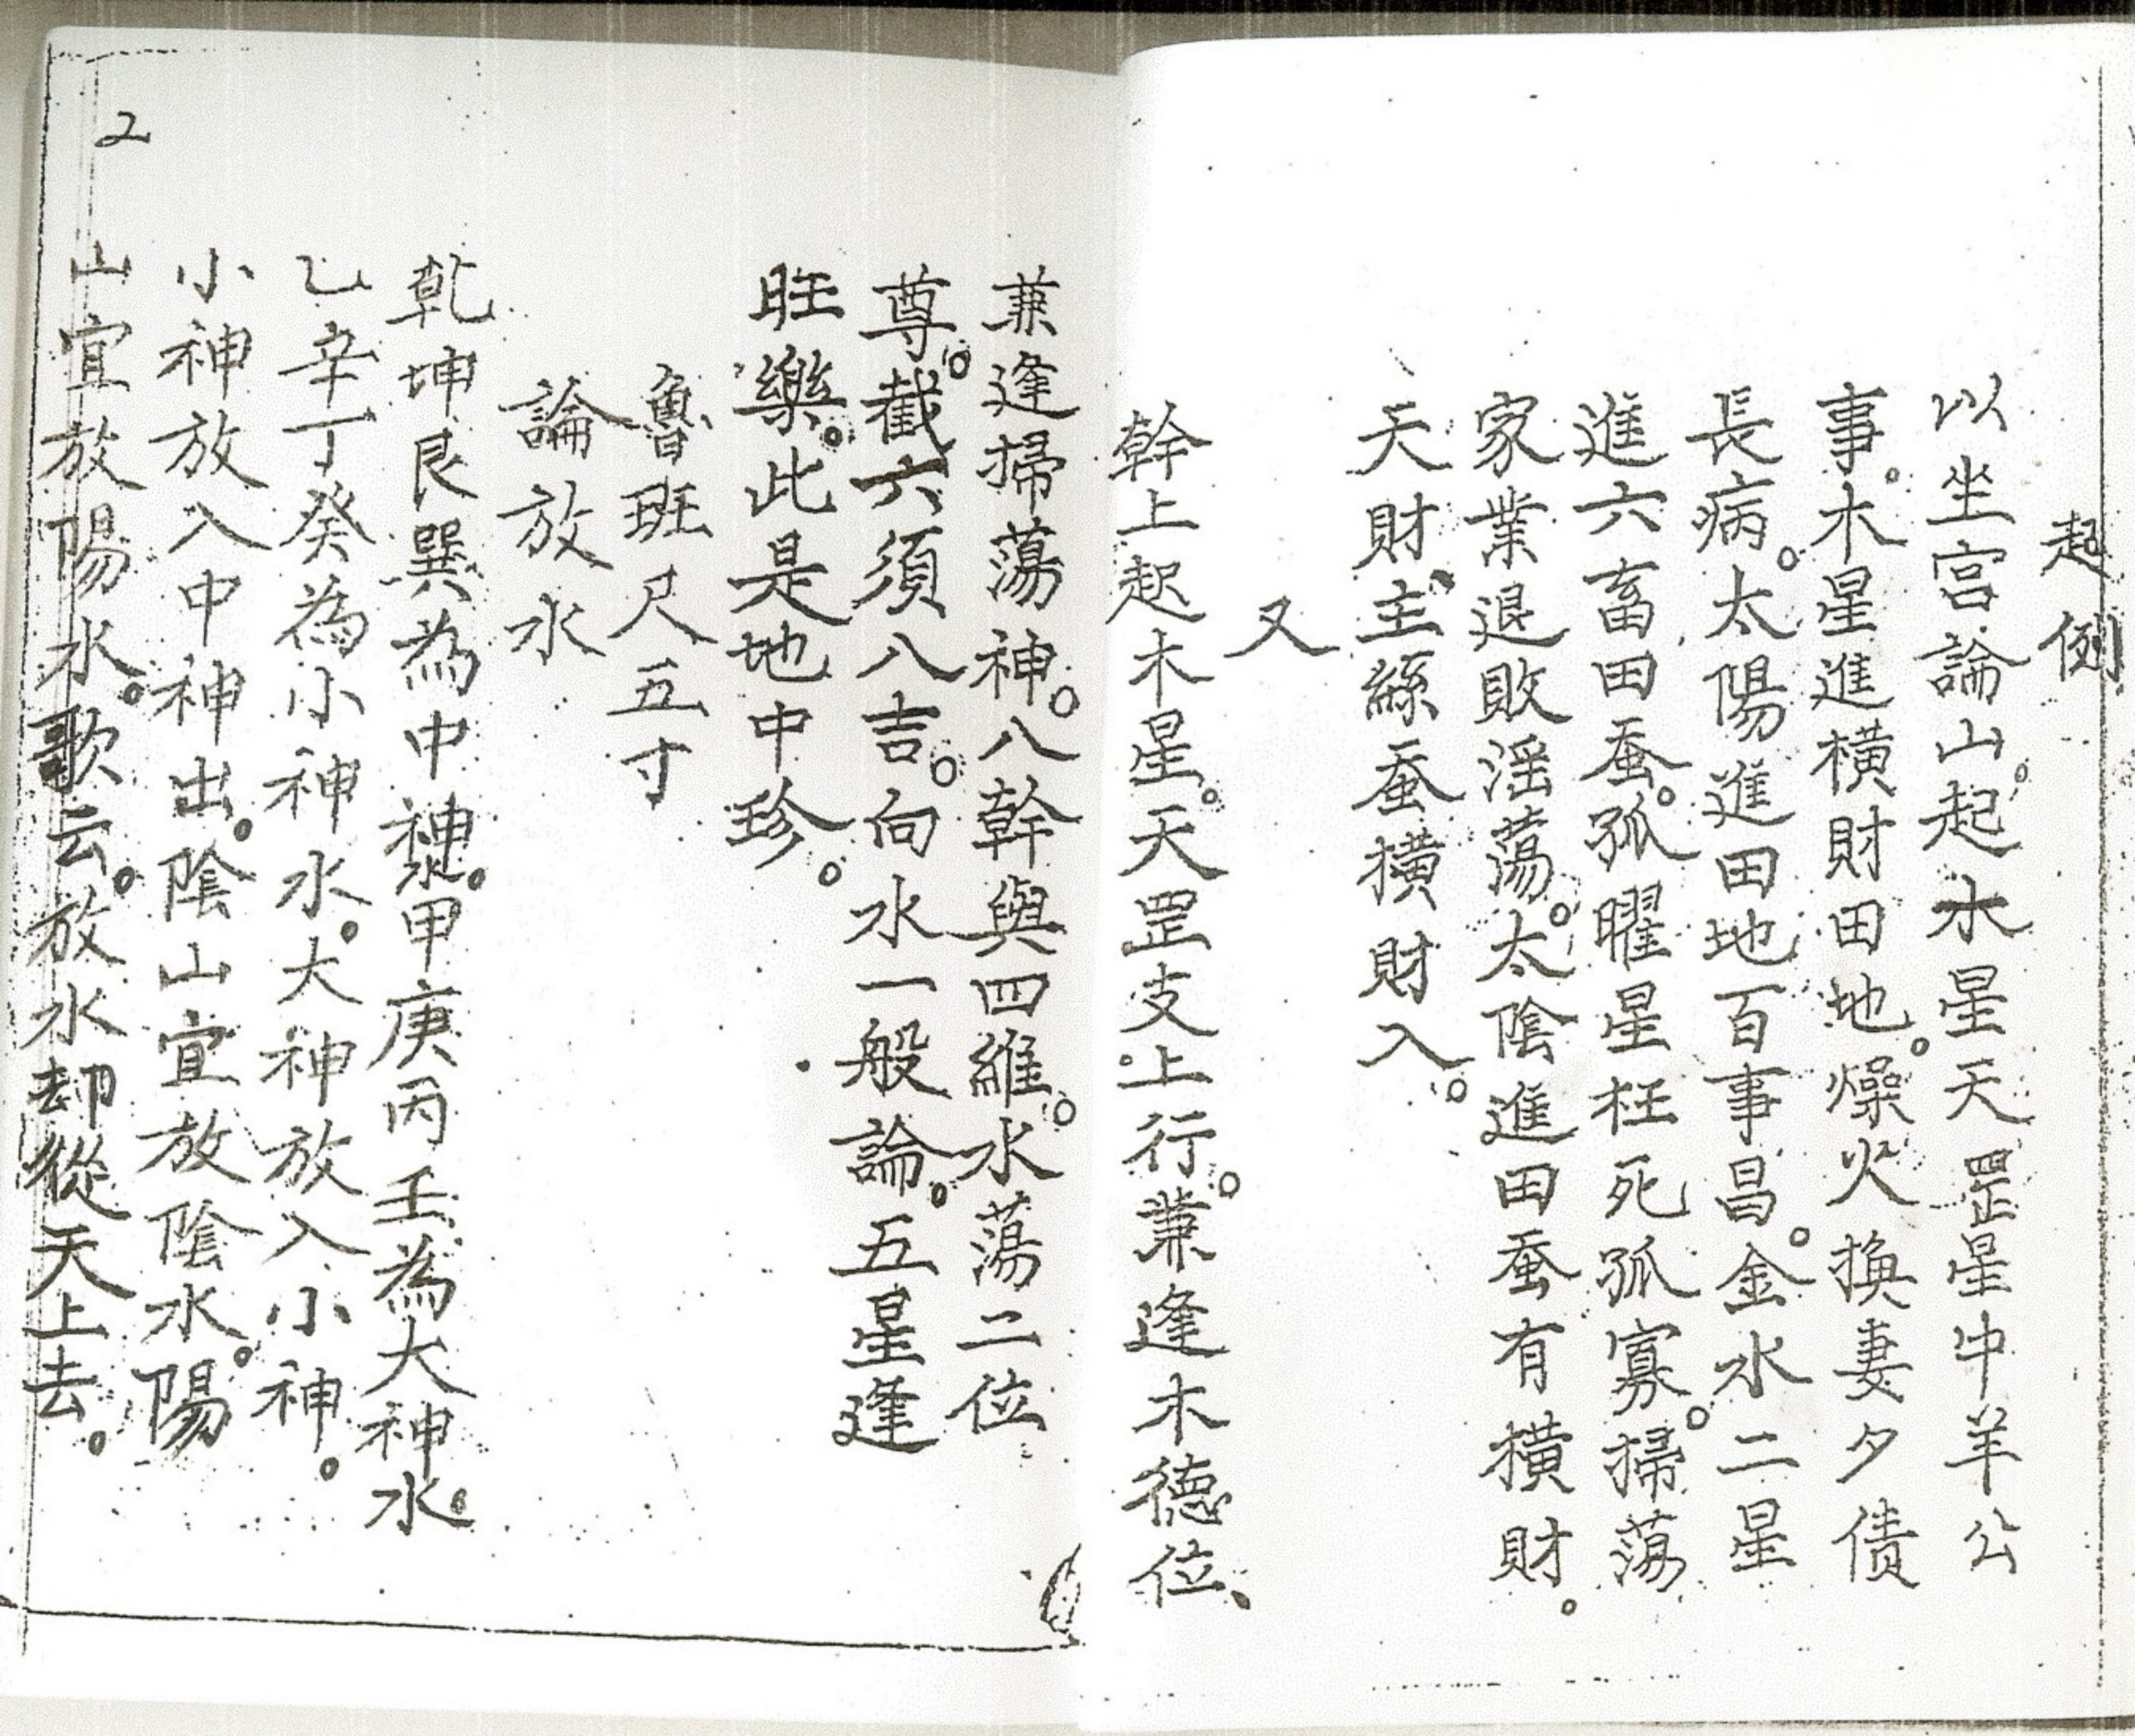 起例
以坐宮論山。起木星天罡星中羊公
事。木星進橫財田地。燥火換妻夕債
長病。太陽進田地百事昌。金水二星
進六畜田蚕。孤曜星枉死孤寡。掃蕩
家業退敗淫蕩。太陰進田蚕有橫財。
天財、主絲蚕橫財入。
又
幹上起木星。天罡支上行。兼逢木德位、
兼逢掃蕩神。八幹與四維。水蕩二位
尊。截六須八吉。向水一般論。五星逢
旺樂。此是地中珍。
魯班尺五寸
論放水
乾坤艮巽為中神。甲庚丙壬為大神水。
乙辛丁癸為小神水。大神放入小神。
小神放入中神出。陰山宜放陰水。陽
山宜放陽水。歌云。放水却從天上去。
2